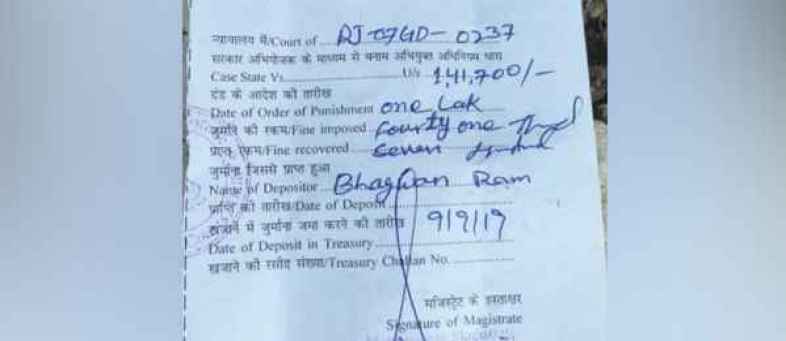 न्यायालय में/Court of RJ-07GD-0237
सरकार अभियोजक के माध्यम से बनाम अभियुक्त अधिनियम धारा
Case State Vs. U/s 1,41,700/-
दंड के आदेश की तारीख
Date of Order of Punishment one Lak
जुर्माने की रकम/Fine imposed Fourty one
प्राप्त रकम/Fine recovered Seven
जुर्माना जिससे प्राप्त हुआ
Name of Depositor Bhagwan Ram
प्राप्ति की तारीख/Date of Deposit
खजाने में जुर्माना जमा करने की तारीख 9/9/19
Date of Deposit in Treasury
खजाने की रसीद संख्या/Treasury Challan No.
मजिस्ट्रेट के हस्ताक्षर
Signature of Magistrate